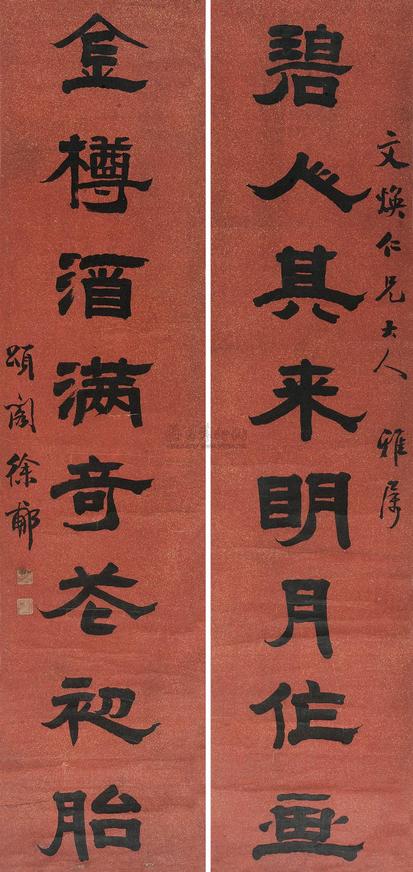 文煥仁兄大人 雅屬
碧人其来眀月作画
金樽酒满奇花初胎
頌閣徐郙